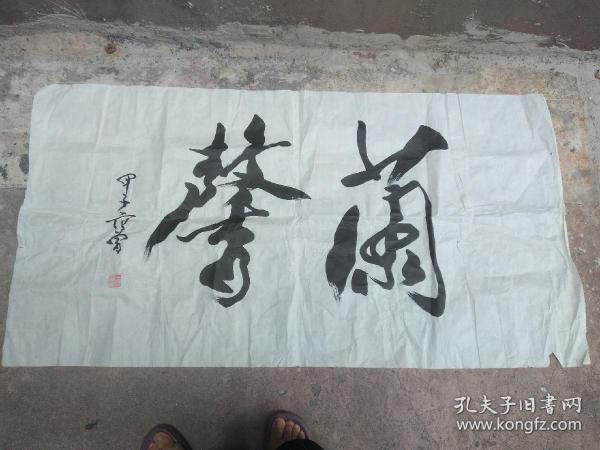 蘭馨
甲子
孔夫子旧書网
www.kongfz.com